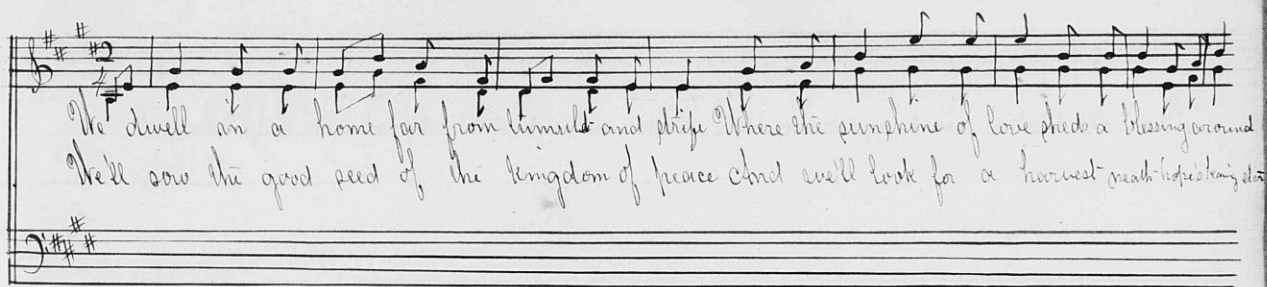 We dwell in a home far from tumult and strife Where the sunshine of love sheds a blessing around
We'll sow the good seed of the kingdom of peace And we'll look for a harvest neath hope's